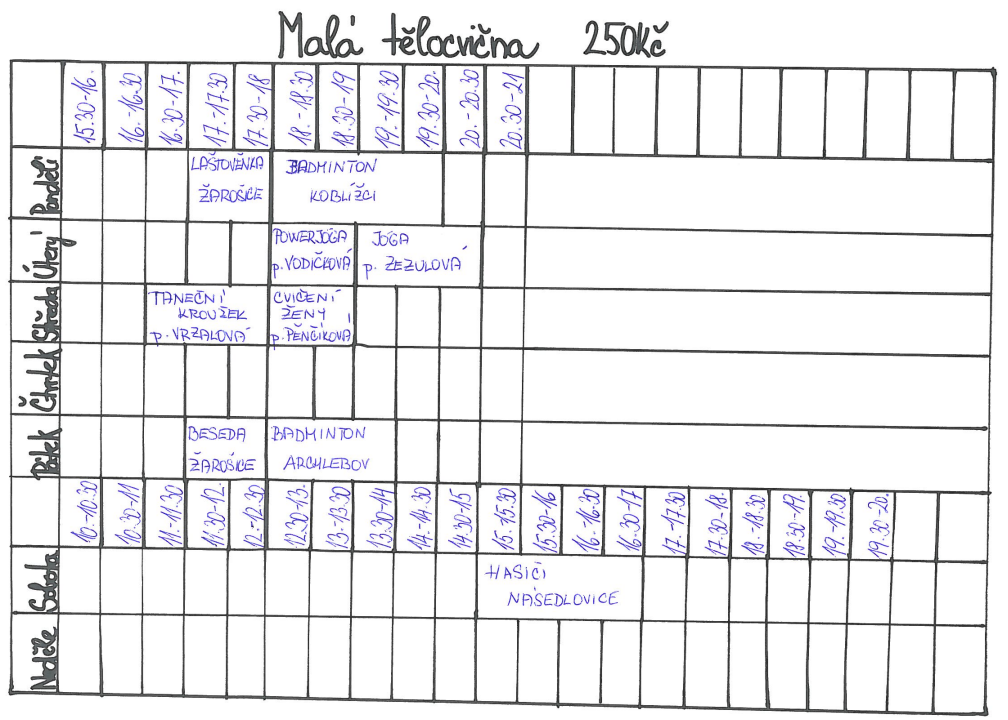 Malá tělocvična 250Kč
15.30-16. 16.-16.30 16.30-17. 17.-17.30 17.30-18 18.-18.30 18.30-19 19.-19.30 19.30-20. 20.-20.30 20.30-21
Pondělí
LAŠTOVĚNKA
ŽAROŠICE
BADMINTON
KOBLÍŽCI
Úterý
POWERJÓGA
p. VODIČKOVÁ
JÓGA
p. ZEZULOVÁ
Středa
TANEČNÍ
KROUŽEK
p. VRZALOVÁ
CVIČENÍ
ŽENY
p. PĚNČÍKOVÁ
Čtvrtek
Pátek
BESEDA
ŽAROŠICE
BADMINTON
ARCHLEBOV
10.-10.30 10.30-11 11.-11.30 11.30-12. 12.-12.30 12.30-13. 13.-13.30 13.30-14 14.-14.30 14.30-15 15.-15.30 15.30-16 16.-16.30 16.30-17 17.-17.30 17.30-18. 18.-18.30 18.30-19. 19.-19.30 19.30-20.
Sobota
HASIČI
NAŠEDLOVICE
Neděle